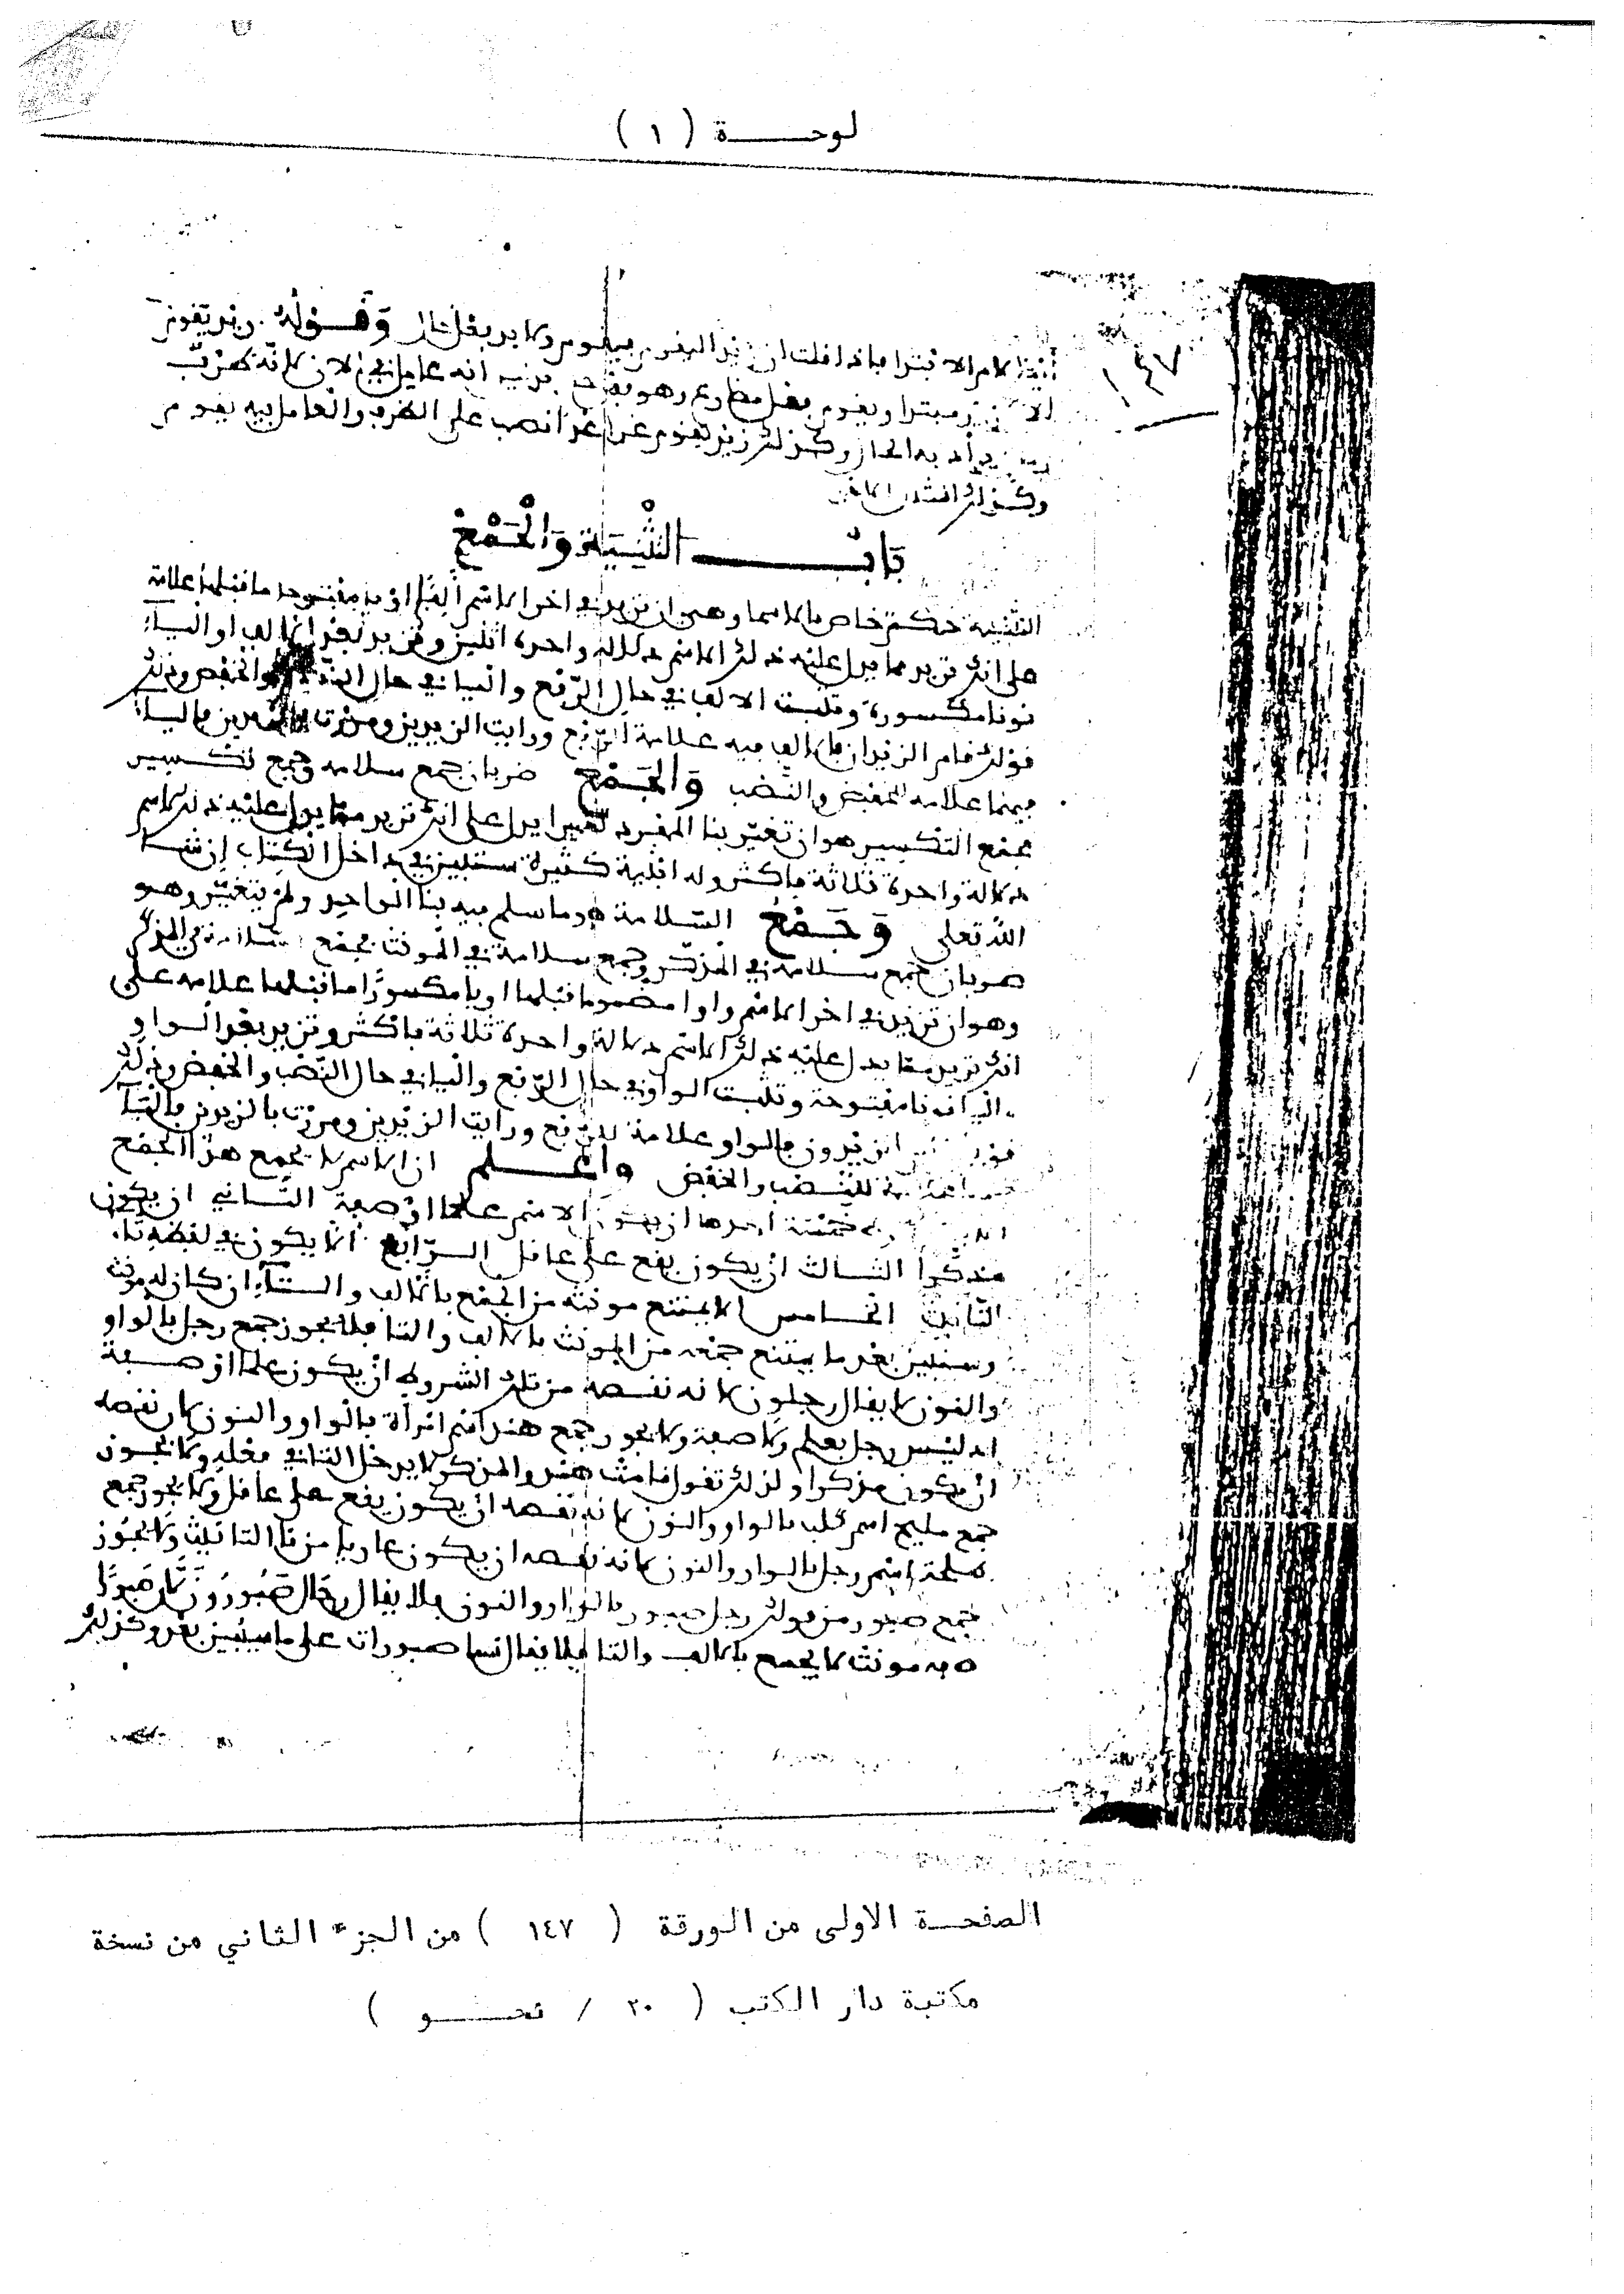 لوحة ( ١ )
١٤٧
وقوله زيد يقوم
الان زيد مبتدا ويقوم فعل مضارع وهو
يراد به الحال وكذلك زيد يقوم غدا غدا نصب على الظرف والعامل فيه يقوم
وكذلك
باب التثنية والجمع
التثنية حكم خاص بالاسما وهي ان تزيد في اخر الاسم الفا او يا مفتوحا ما قبلها علامة
على انك تريد مما يدل عليه ذلك الاسم دلالة واحدة اثنين وتزيد بعد الالف او الياء
نونا مكسورة وقلبت الالف في حال الرفع واليا في حال والخفض وذلك
قولك قام الزيدان فالالف فيه علامة الرفع ورايت الزيدين ومررت بالزيدين فالياء
فيهما علامة الخفض والنصب والجمع ضربان جمع سلامة وجمع تكسير
فجمع التكسير هو ان تغير بنا المفرد تغييرا يدل على انك تريد مما يدل عليه ذلك الاسم
دلالة واحدة ثلاثة فاكثر وله ابنية كثيرة ستبين في داخل الكتاب إن شا
الله تعلى وجمع السلامة هو ما سلم فيه بنا الواحد ولم يتغير وهو
ضربان جمع سلامة في المذكر وجمع سلامة في المونث فجمع السلامة في المذكر
وهو ان تزيد في اخر الاسم واوا مضموما ما قبلها او يا مكسورا ما قبلها علامة على
انك تريد مما يدل عليه ذلك الاسم دلالة واحدة ثلاثة فاكثر وتزيد بعد الواو
واليا نونا مفتوحة وتثبت الواو في حال الرفع واليا في حال النصب والخفض وذلك
الزيدون فالواو علامة للرفع ورايت الزيدين ومررت بالزيدين فاليا
للنصب والخفض واعلم ان الاسم لا يجمع هذا الجمع
خمسة احدها ان يكون الاسم علما او صفة الثاني ان يكون
مذكرا الثالث ان يكون يقع على عاقل الرابع الا يكون في لفظه تاء
التانيث الخامس الا يمتنع مونثه من الجمع بالالف والتاء ان كان له مونث
وسنبين بعد ما يمتنع جمعه من المونث بالالف والتا فلا يجوز جمع رجل بالواو
والنون لا يقال رجلون لانه نقصه من تلك الشروط ان يكون علما او صفة
اذ ليس رجل بعلم ولا صفة ولا يجوز جمع هند اسم امرأة بالواو والنون لان نقصه
ان يكون مذكرا ولذلك تقول قامت هند والمذكر لا يدخل التا في فعله ولا يجوز
جمع مليح اسم كلب بالواو والنون لانه نقصه ان يكون يقع على عاقل ولا يجوز جمع
طلحة اسم رجل بالواو والنون لانه نقصه ان يكون عاريا من تا التانيث ولا يجوز
جمع صبور من قولك رجل صبور بالواو والنون فلا يقال رجال صبورون لان صبورا
مونثه لا يجمع بالالف والتا فلا يقال نسا صبورات على ما سيبين بعد وكذلك
الصفحة الاولى من الورقة ( ١٤٧ ) من الجزء الثاني من نسخة
مكتبة دار الكتب ( ٢٠ / نحو )